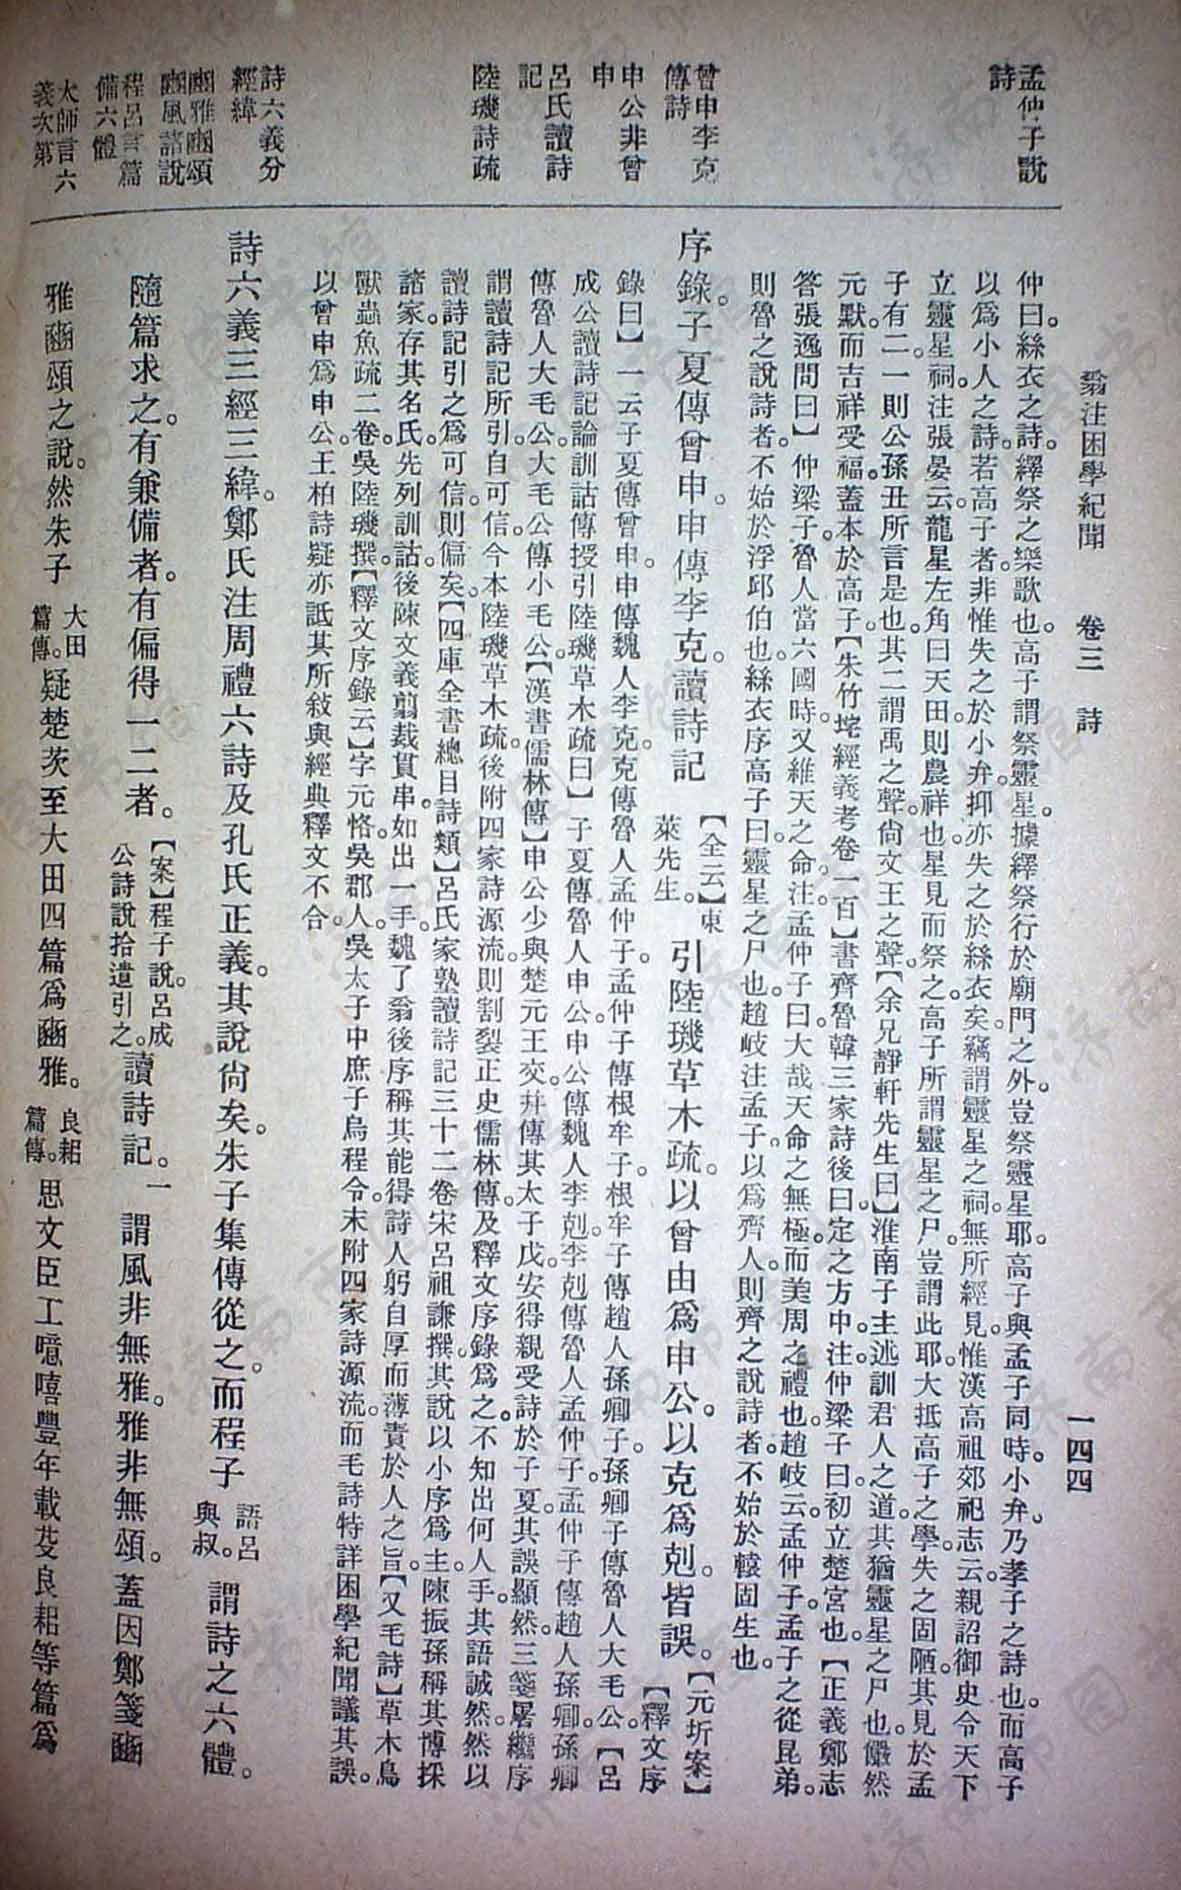 翁注困學紀聞　卷三　詩　一四四
孟仲子說
詩
曾申李克
傳詩
申公非曾
申
呂氏讀詩
記
陸璣詩疏
詩六義分
經緯
豳雅豳頌
豳風諸說
程呂言篇
備六體
大師言六
義次第
仲曰。絲衣之詩。繹祭之樂歌也。高子謂祭靈星。據繹祭行於廟門之外。豈祭靈星耶。高子與孟子同時。小弁。乃孝子之詩也。而高子
以爲小人之詩。若高子者。非惟失之於小弁。抑亦失之於絲衣矣。竊謂靈星之祠。無所經見。惟漢高祖郊祀志云。親詔御史令天下
立靈星祠。注張晏云。龍星左角曰天田。則農祥也。星見而祭之。高子所謂靈星之尸。豈謂此耶。大抵高子之學。失之固陋。其見於孟
子有二。一則公孫丑所言是也。其二謂禹之聲。尙文王之聲。【余兄靜軒先生曰】淮南子主述訓君人之道。其猶靈星之尸也。儼然
元默。而吉祥受福。蓋本於高子。【朱竹垞經義考卷一百】書齊魯韓三家詩後曰。定之方中。注。仲梁子曰。初立楚宮也。【正義鄭志
答張逸問曰】仲梁子。魯人當六國時。又維天之命。注。孟仲子曰。大哉天命之無極。而美周之禮也。趙岐云。孟仲子。孟子之從昆弟。
則魯之說詩者。不始於浮邱伯也。絲衣序高子曰。靈星之尸也。趙岐注孟子。以爲齊人。則齊之說詩者。不始於轅固生也。
序錄。子夏傳曾申。申傳李克。讀詩記【全云】東萊先生。引陸璣草木疏。以曾由爲申公。以克爲剋。皆誤。【元圻案】【釋文序
錄曰】一云子夏傳曾申。申傳魏人李克。克傳魯人孟仲子。孟仲子傳根牟子。根牟子傳趙人孫卿子。孫卿子傳魯人大毛公。【呂
成公讀詩記論訓詁傳授引陸璣草木疏曰】子夏傳魯人申公。申公傳魏人李剋。李剋傳魯人孟仲子。孟仲子傳趙人孫卿。孫卿
傳魯人大毛公。大毛公傳小毛公。【漢書儒林傳】申公少與楚元王交。幷傳其太子戊。安得親受詩於子夏。其誤顯然。三箋畧繼序
謂讀詩記所引。自可信。今本陸璣草木疏。後附四家詩源流。則割裂正史儒林傳。及釋文序錄爲之。不知出何人手。其語誠然。然以
讀詩記引之爲可信。則偏矣。【四庫全書總目詩類】呂氏家塾讀詩記三十二卷宋呂祖謙撰。其說以小序爲主。陳振孫稱其博採
諸家。存其名氏。先列訓詁。後陳文義。翦裁貫串。如出一手。魏了翁後序稱其能得詩人躬自厚而薄責於人之旨。【又毛詩】草木鳥
獸蟲魚疏二卷。吳陸璣撰。【釋文序錄云】字元恪。吳郡人。吳太子中庶子烏程令。末附四家詩源流。而毛詩特詳。困學紀聞議其誤。
以曾申爲申公。王柏詩疑亦詆其所敍與經典釋文不合。
詩六義三經三緯。鄭氏注周禮六詩及孔氏正義。其說尙矣。朱子集傳從之。而程子語呂與叔。謂詩之六體。
隨篇求之。有兼備者。有偏得一二者。【案】程子說。呂成公詩說拾遺引之。讀詩記。一謂風非無雅。雅非無頌。蓋因鄭箋豳
雅豳頌之說。然朱子大田篇傳。疑楚茨至大田四篇爲豳雅。良耜篇傳。思文臣工噫嘻豐年載芟良耜等篇爲